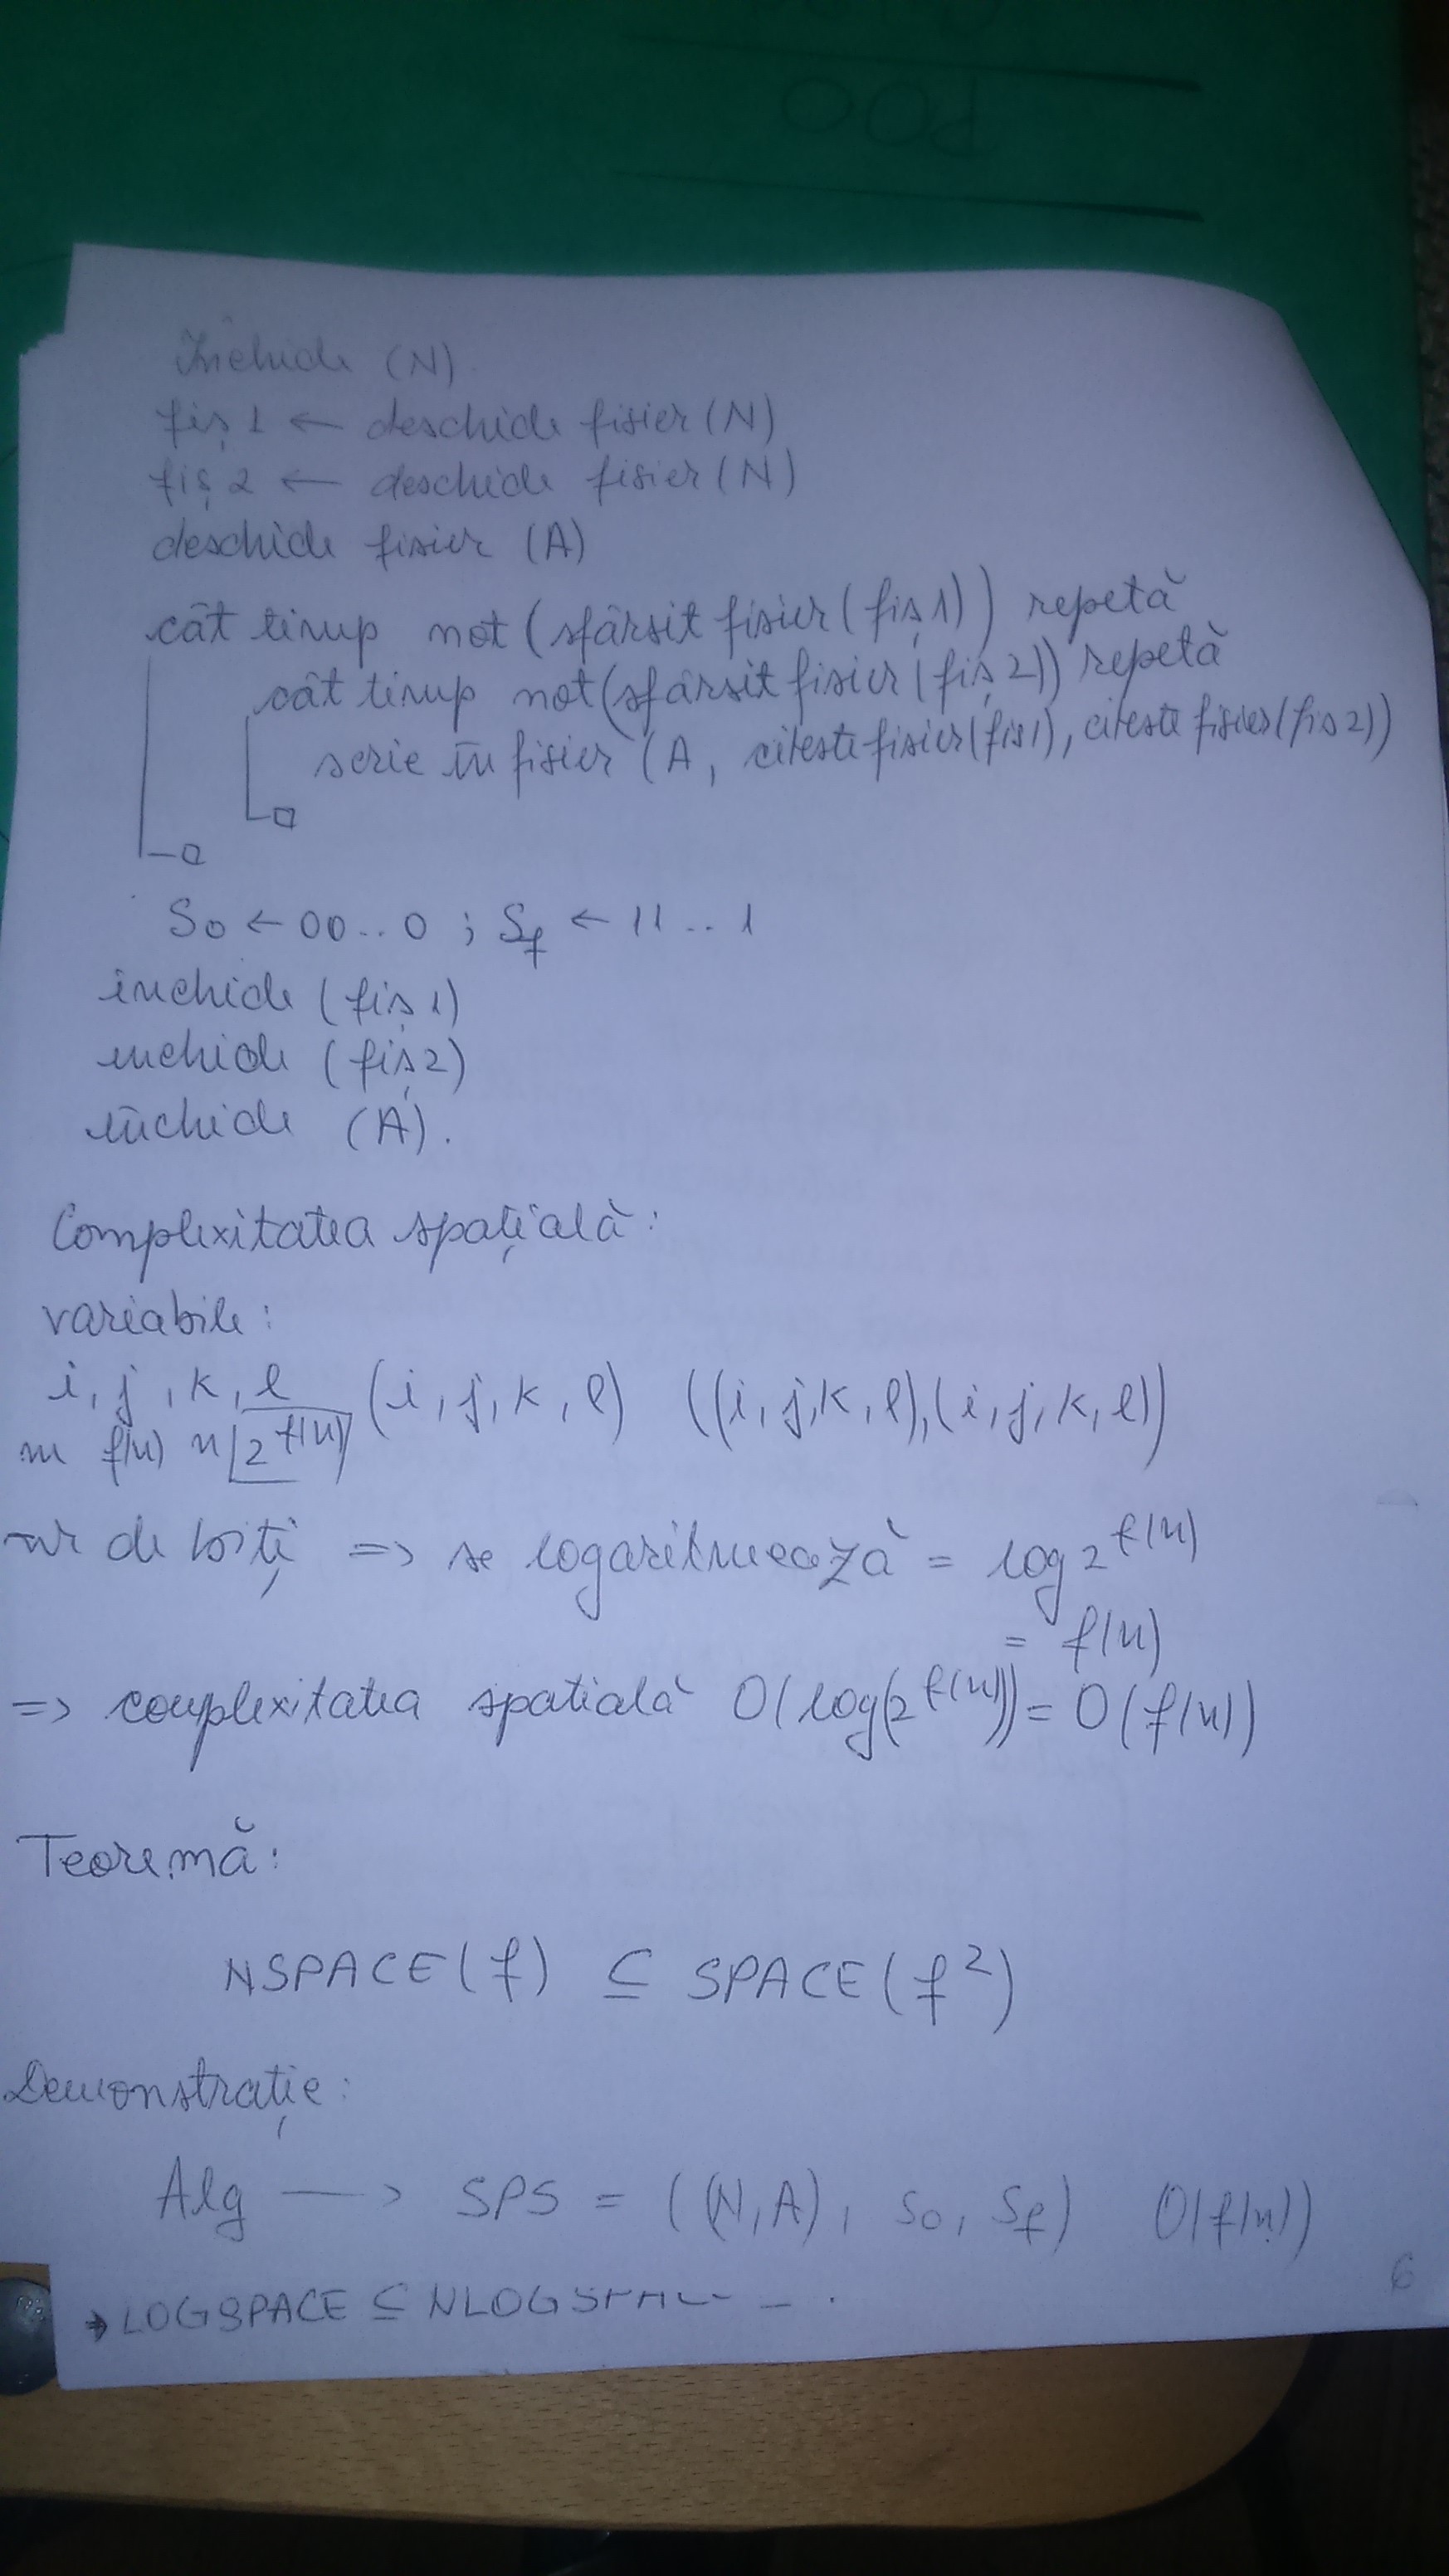 POO
Închide (N)
fiș1 ← deschide fisier (N)
fiș2 ← deschide fisier (N)
deschide fisier (A)
cât timp not (sfârsit fisier (fiș1)) repetă
cât timp not (sfârsit fisier (fiș2)) repetă
scrie în fisier (A, citeste fisier (fis1), citeste fisier (fis2))
S0 ← 00..0 ; Sf ← 11..1
inchide (fiș1)
inchide (fiș2)
închide (A).
Complexitatea spațială:
variabile:
i, j, k, l (i, j, k, l) ((i, j, k, l), (i, j, k, l))
m f(n) n 2^f(n)
nr de biți => se logaritmează = log 2^f(n)
= f(n)
=> complexitatea spatială O(log(2^f(n))) = O(f(n))
Teoremă:
NSPACE(f) ⊆ SPACE(f²)
Demonstrație:
Alg —> SPS = ((N, A), S0, Sf) O(f(n))
6
→ LOGSPACE ⊆